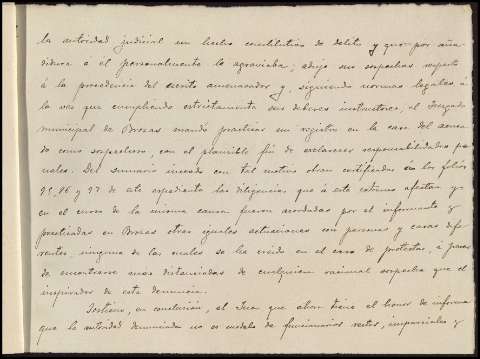 la autoridad judicial un hecho constitutivo de delito y que por aña
didura á el personalmente le agraviaba; adujo sus sospechas respecto
á la procedencia del escrito amenazador y, siguiendo normas legales á
la vez que cumpliendo estrictamente sus deberes instructores, el Juzgado
municipal de Brozas mandó practicar un registro en la casa del acusa
do como sospechoso, con el plausible fin de esclarecer responsabilidades pe
nales. Del sumario incoado con tal motivo obran certificadas én los folios
95, 96 y 97 de este expediente las diligencias que á este extremo afectan y
en el curso de la misma causa fueron acordadas por el informante y
practicadas en Brozas otras iguales actuaciones con personas y casas dife
rentes, ninguna de las cuales se ha creido en el caso de protestar, á pesar
de encontrarse mas distanciadas de cualquier racional sospecha que el
inspirador de esta denuncia.
Sostiene, en conclusión, el Juez que ahora tiene el honor de informar
que la autoridad denunciada no es modelo de funcionarios rectos, imparciales y